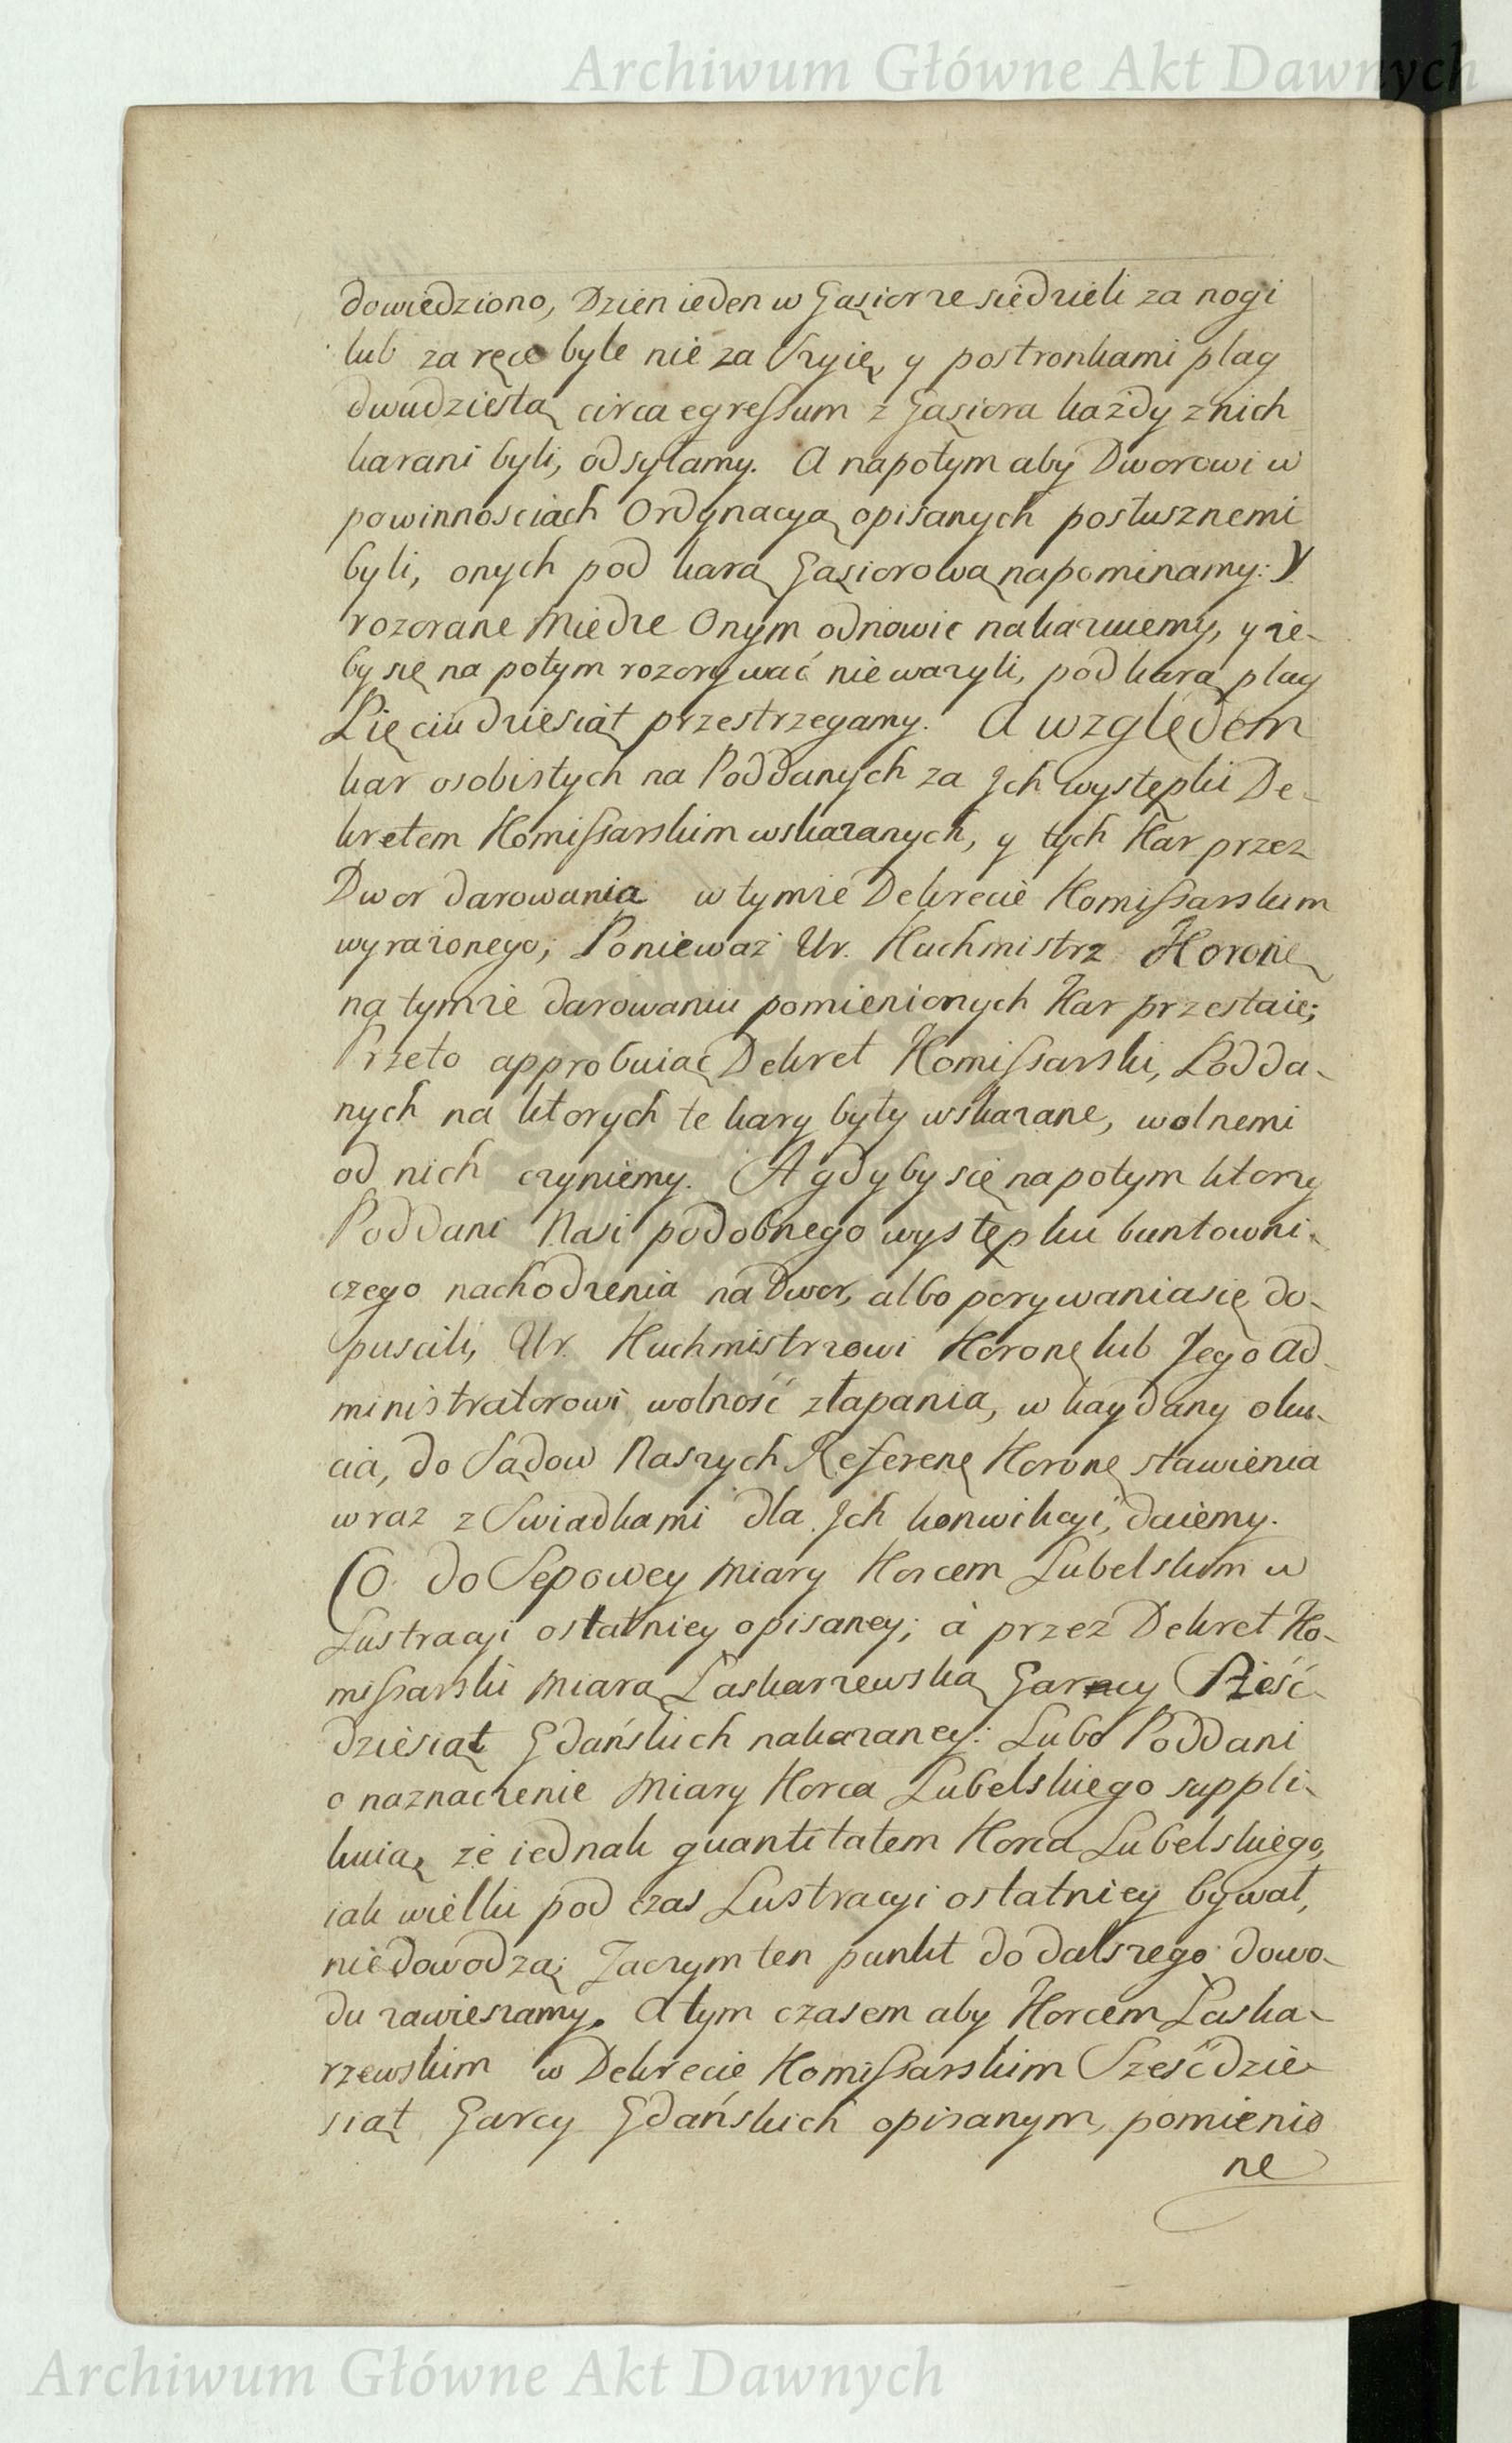 Archiwum Główne Akt Dawnych
dowiedziono, Dzien ieden w Gąsiorze siedzieli za nogi
lub za ręce byle nie za Szyię, y postronkami plag
dwudziestą circa egressum z Gąsiora każdy z nich
karani byli, odsyłamy. A napotym aby Dworowi w
powinnosciach Ordynacyą opisanych posłusznemi
byli, onych pod karą Gąsiorową napominamy: Y
rozorane Miedze Onym odnowic nakazuiemy, y że-
by się na potym rozorywać nie ważyli, pod karą plag
Pięciudziesiąt przestrzegamy. A względem
kar osobistych na Poddanych za Ich występki De-
kretem Komissarskim wskazanych, y tych Kar przez
Dwor darowania w tymże Dekrecie Komissarskim
wyrażonego; Ponieważ Ur. Kuchmistrz Koronę
na tymże darowaniu pomienionych Kar przestaie;
Przeto approbuiąc Dekret Komissarski, Podda-
nych na ktorych te kary były wskazane, wolnemi
od nich czyniemy. A gdyby się napotym ktorzy
Poddani Nasi podobnego występku buntowni-
czego nachodzenia na Dwor, albo porywania się do-
puscili, Ur. Kuchmistrzowi Koronę lub Jego Ad-
ministratorowi wolność złapania, w kaydany oku-
cia, do Sądow Naszych Referenę Koronę stawienia
wraz z Swiadkami dla Ich konwikcyi, daiemy.
Co do Sepowey miary Korcem Lubelskim w
Lustracyi ostatniey opisaney; à przez Dekret Ko-
missarski miarą Laskarzewską Garncy Sześć-
dziesiąt Gdańskich nakazaney: Lubo Poddani
o naznaczenie Miary Korca Lubelskiego suppli-
kuią, że iednak quantitatem Korca Lubelskiego,
iak wielki pod czas Lustracyi ostatniey bywał,
niedowodzą; Zaczym ten punkt do dalszego dowo-
du zawieszamy. A tym czasem aby Korcem Laska-
rzewskim w Dekrecie Komissarskim Sześćdzie-
siąt Garcy Gdańskich opisanym, pomienio
ne
Archiwum Główne Akt Dawnych